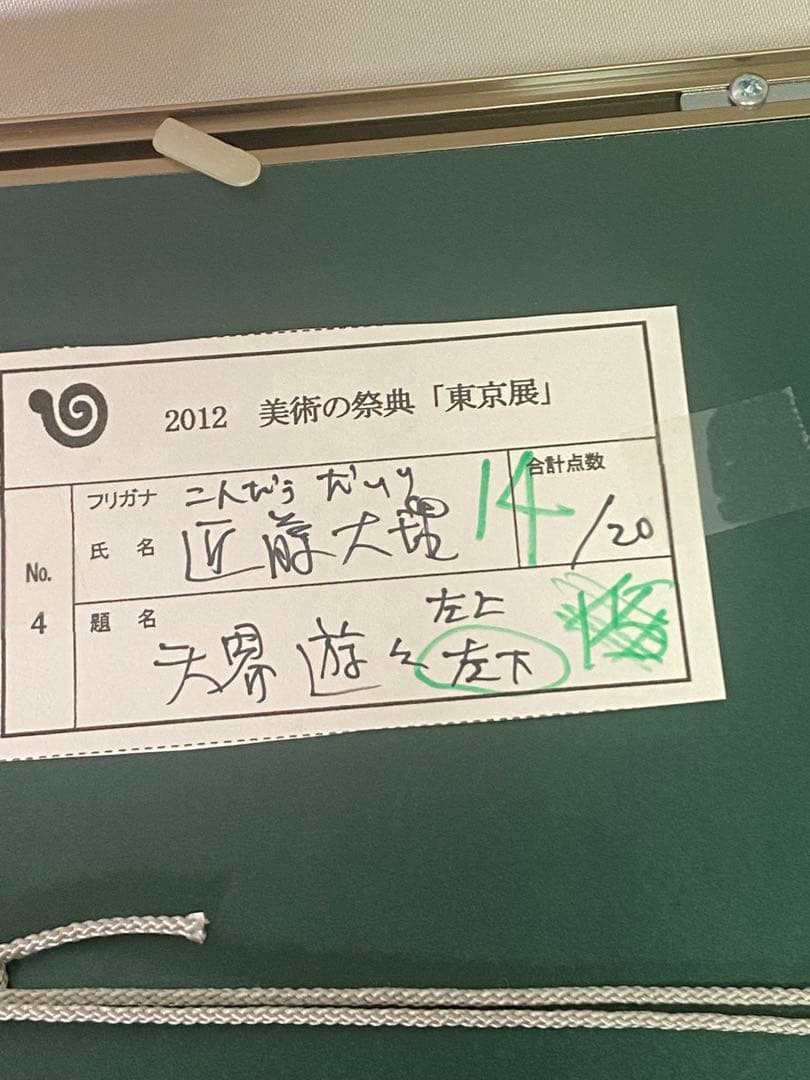 2012 美術の祭典「東京展」
フリガナ こんどう だいち
氏名 近藤大地
14
合計点数
/20
No.
4
題名
左上
天界 遊々 左下